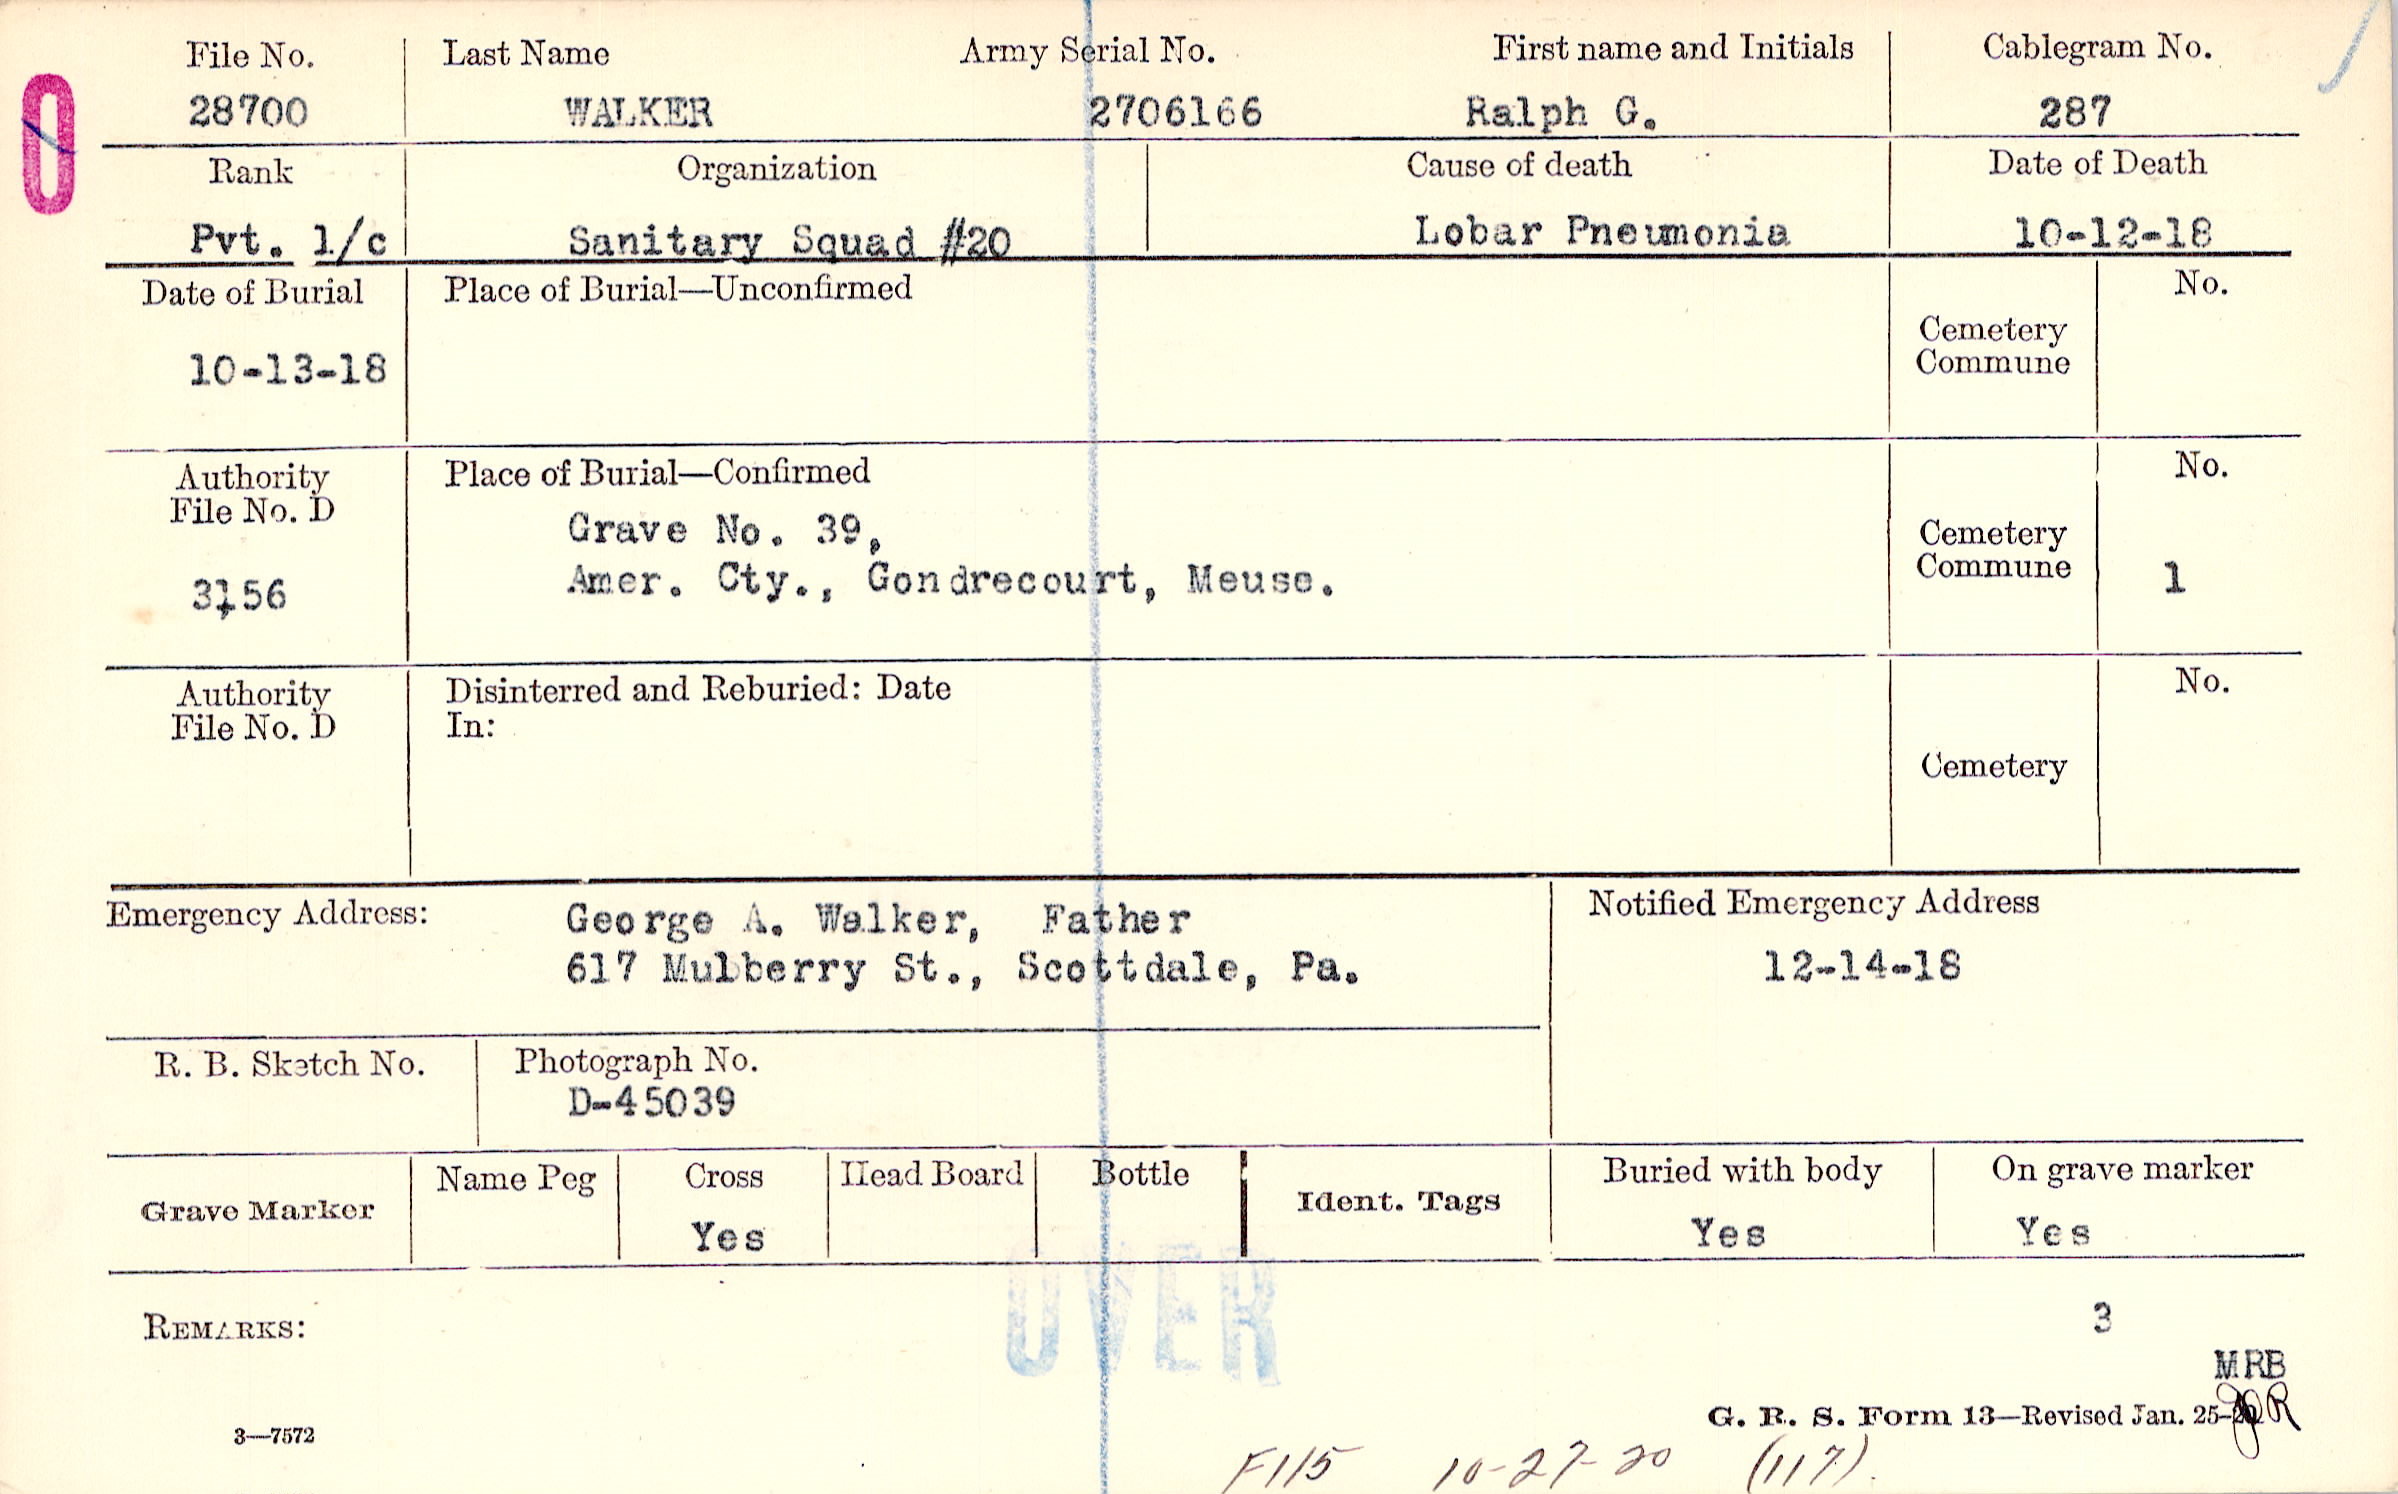 File No. Last Name Army Serial No. First name and Initials Cablegram No.
28700 WALKER 2706166 Ralph G. 287
Rank Organization Cause of death Date of Death
Pvt. 1/c Sanitary Squad #20 Lobar Pneumonia 10-12-18
Date of Burial Place of Burial—Unconfirmed No.
Cemetery
Commune
10-13-18
Authority Place of Burial—Confirmed No.
File No. D
Grave No. 39,
Cemetery
Commune
3156 Amer. Cty., Gondrecourt, Meuse. 1
Authority Disinterred and Reburied: Date No.
File No. D In:
Cemetery
Emergency Address: George A. Walker, Father Notified Emergency Address
617 Mulberry St., Scottdale, Pa. 12-14-18
R. B. Sketch No. Photograph No.
D-45039
Grave Marker Name Peg Cross Head Board Bottle Ident. Tags Buried with body On grave marker
Yes Yes Yes
OVER
REMARKS: 3
MRB
G. R. S. Form 13—Revised Jan. 25-20
3—7572
F115 10-27-20 (117)